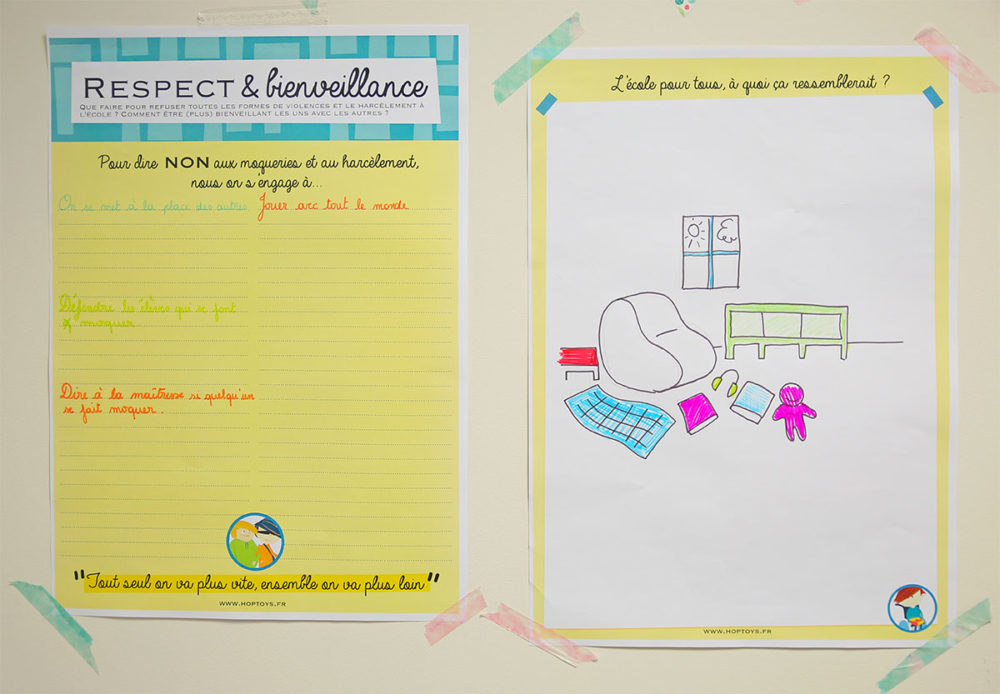 RESPECT & bienveillance
QUE FAIRE POUR REFUSER TOUTES LES FORMES DE VIOLENCES ET LE HARCÈLEMENT À
L'ÉCOLE ? COMMENT ÊTRE (PLUS) BIENVEILLANT LES UNS AVEC LES AUTRES ?
Pour dire NON aux moqueries et au harcèlement,
nous on s'engage à...
On se met à la place des autres.
Jouer avc tout le monde
Défendre les élèves qui se font
moquer
Dire à la maîtresse si quelqu'un
se fait moquer.
"Tout seul on va plus vite, ensemble on va plus loin"
WWW.HOPTOYS.FR
L'école pour tous, à quoi ça ressemblerait ?
WWW.HOPTOYS.FR